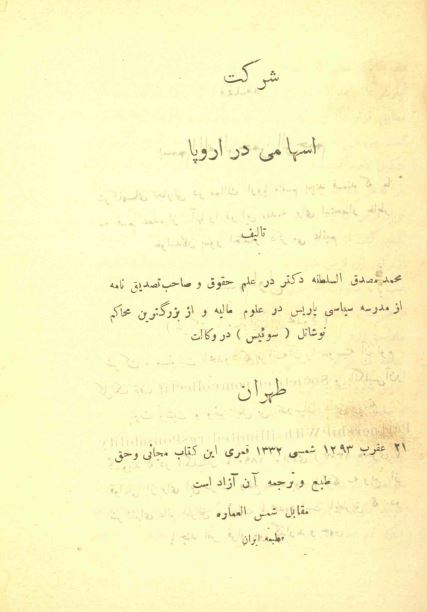 شرکت
اسهامی در اروپا
تألیف
محمد مصدق السلطنه دکتر در علم حقوق و صاحب تصدیق نامه
از مدرسه سیاسی پاریس در علوم مالیه و از بزرگترین محاکم
نوشاتل ( سوئیس ) در وکالت
طهران
۲۱ عقرب ۱۲۹۳ شمسی ۱۳۳۲ قمری این کتاب مجانی وحق
طبع و ترجمه آن آزاد است
مقابل شمس العماره
مطبعه ایران